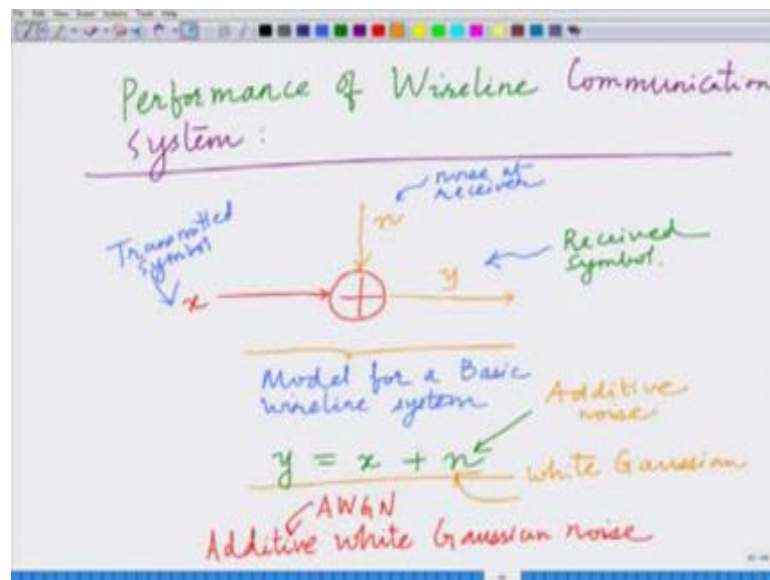 Performance of Wireline Communication
System:
noise at
receiver
n
Transmitted
symbol
x
y
Received
symbol.
Model for a Basic
wireline system
Additive
noise
y = x + n
White Gaussian
AWGN
Additive white Gaussian noise